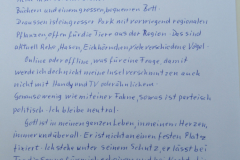 Büchern und einem grossen, bequemen Bett
Draussen ist ein grosser Park mit vorwiegend regionalen
Pflanzen, offen für die Tiere aus der Region. Das sind
aktuell Rehe, Hasen, Eichhörnchen, sehr verschiedene Vögel.
Online oder offline, was für eine Frage, damit
werde ich doch nicht meine Insel verschandeln auch
nicht mit Handy und TV oder ähnlichem
Genauso wenig wie mit einer Fahne, sowas ist parteiisch
politisch. Ich bleibe neutral.
Gott ist in meinem ganzen Leben, in meinem Herzen,
immer und überall. Er ist nicht an einen festen Platz
fixiert. Ich stehe unter seinem Schutz, er lässt bei